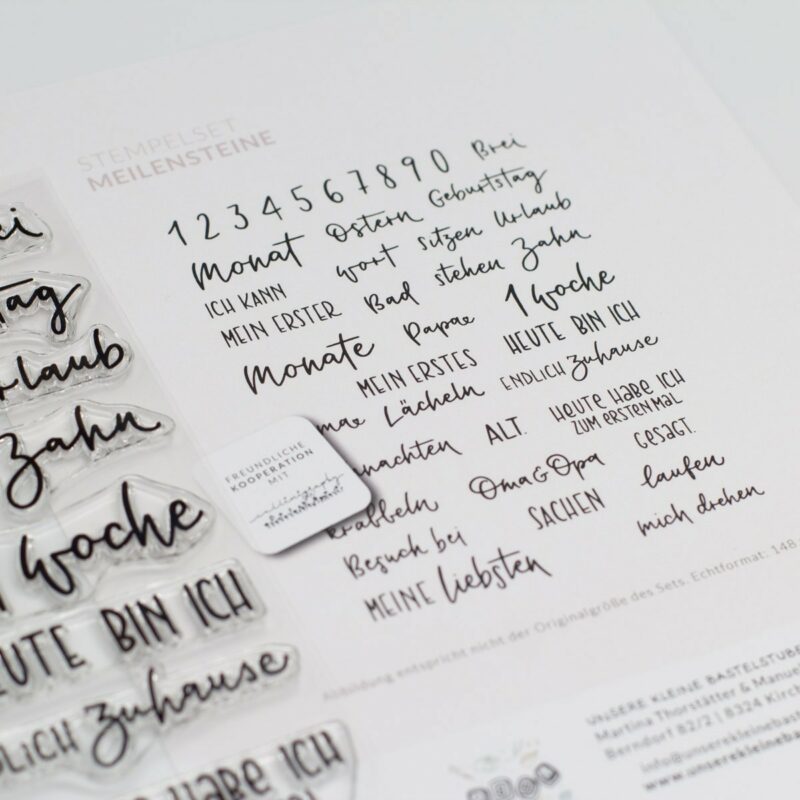 STEMPELSET
MEILENSTEINE
1 2 3 4 5 6 7 8 9 0 Brei
Monat Ostern Geburtstag
ICH KANN wort sitzen Urlaub
MEIN ERSTER Bad stehen Zahn
Monate Papa 1 Woche
MEIN ERSTES HEUTE BIN ICH
Lächeln ENDLICH zuhause
ALT. HEUTE HABE ICH
ZUM ERSTEN MAL
Oma&Opa GESAGT.
krabbeln SACHEN laufen
Besuch bei mich drehen
MEINE liebsten
FREUNDLICHE
KOOPERATION
MIT
Abbildung entspricht nicht der Originalgröße des Sets. Echtformat: 148
UNSERE KLEINE BASTELSTUBE
Martina Thorstätter & Manuel
Berndorf 82/2 | 8324 Kirch
info@unserekleinebast
www.unsereklein
ei
tag
rlaub
Zahn
woche
EUTE BIN ICH
DLICH zuhause
HABE ICH